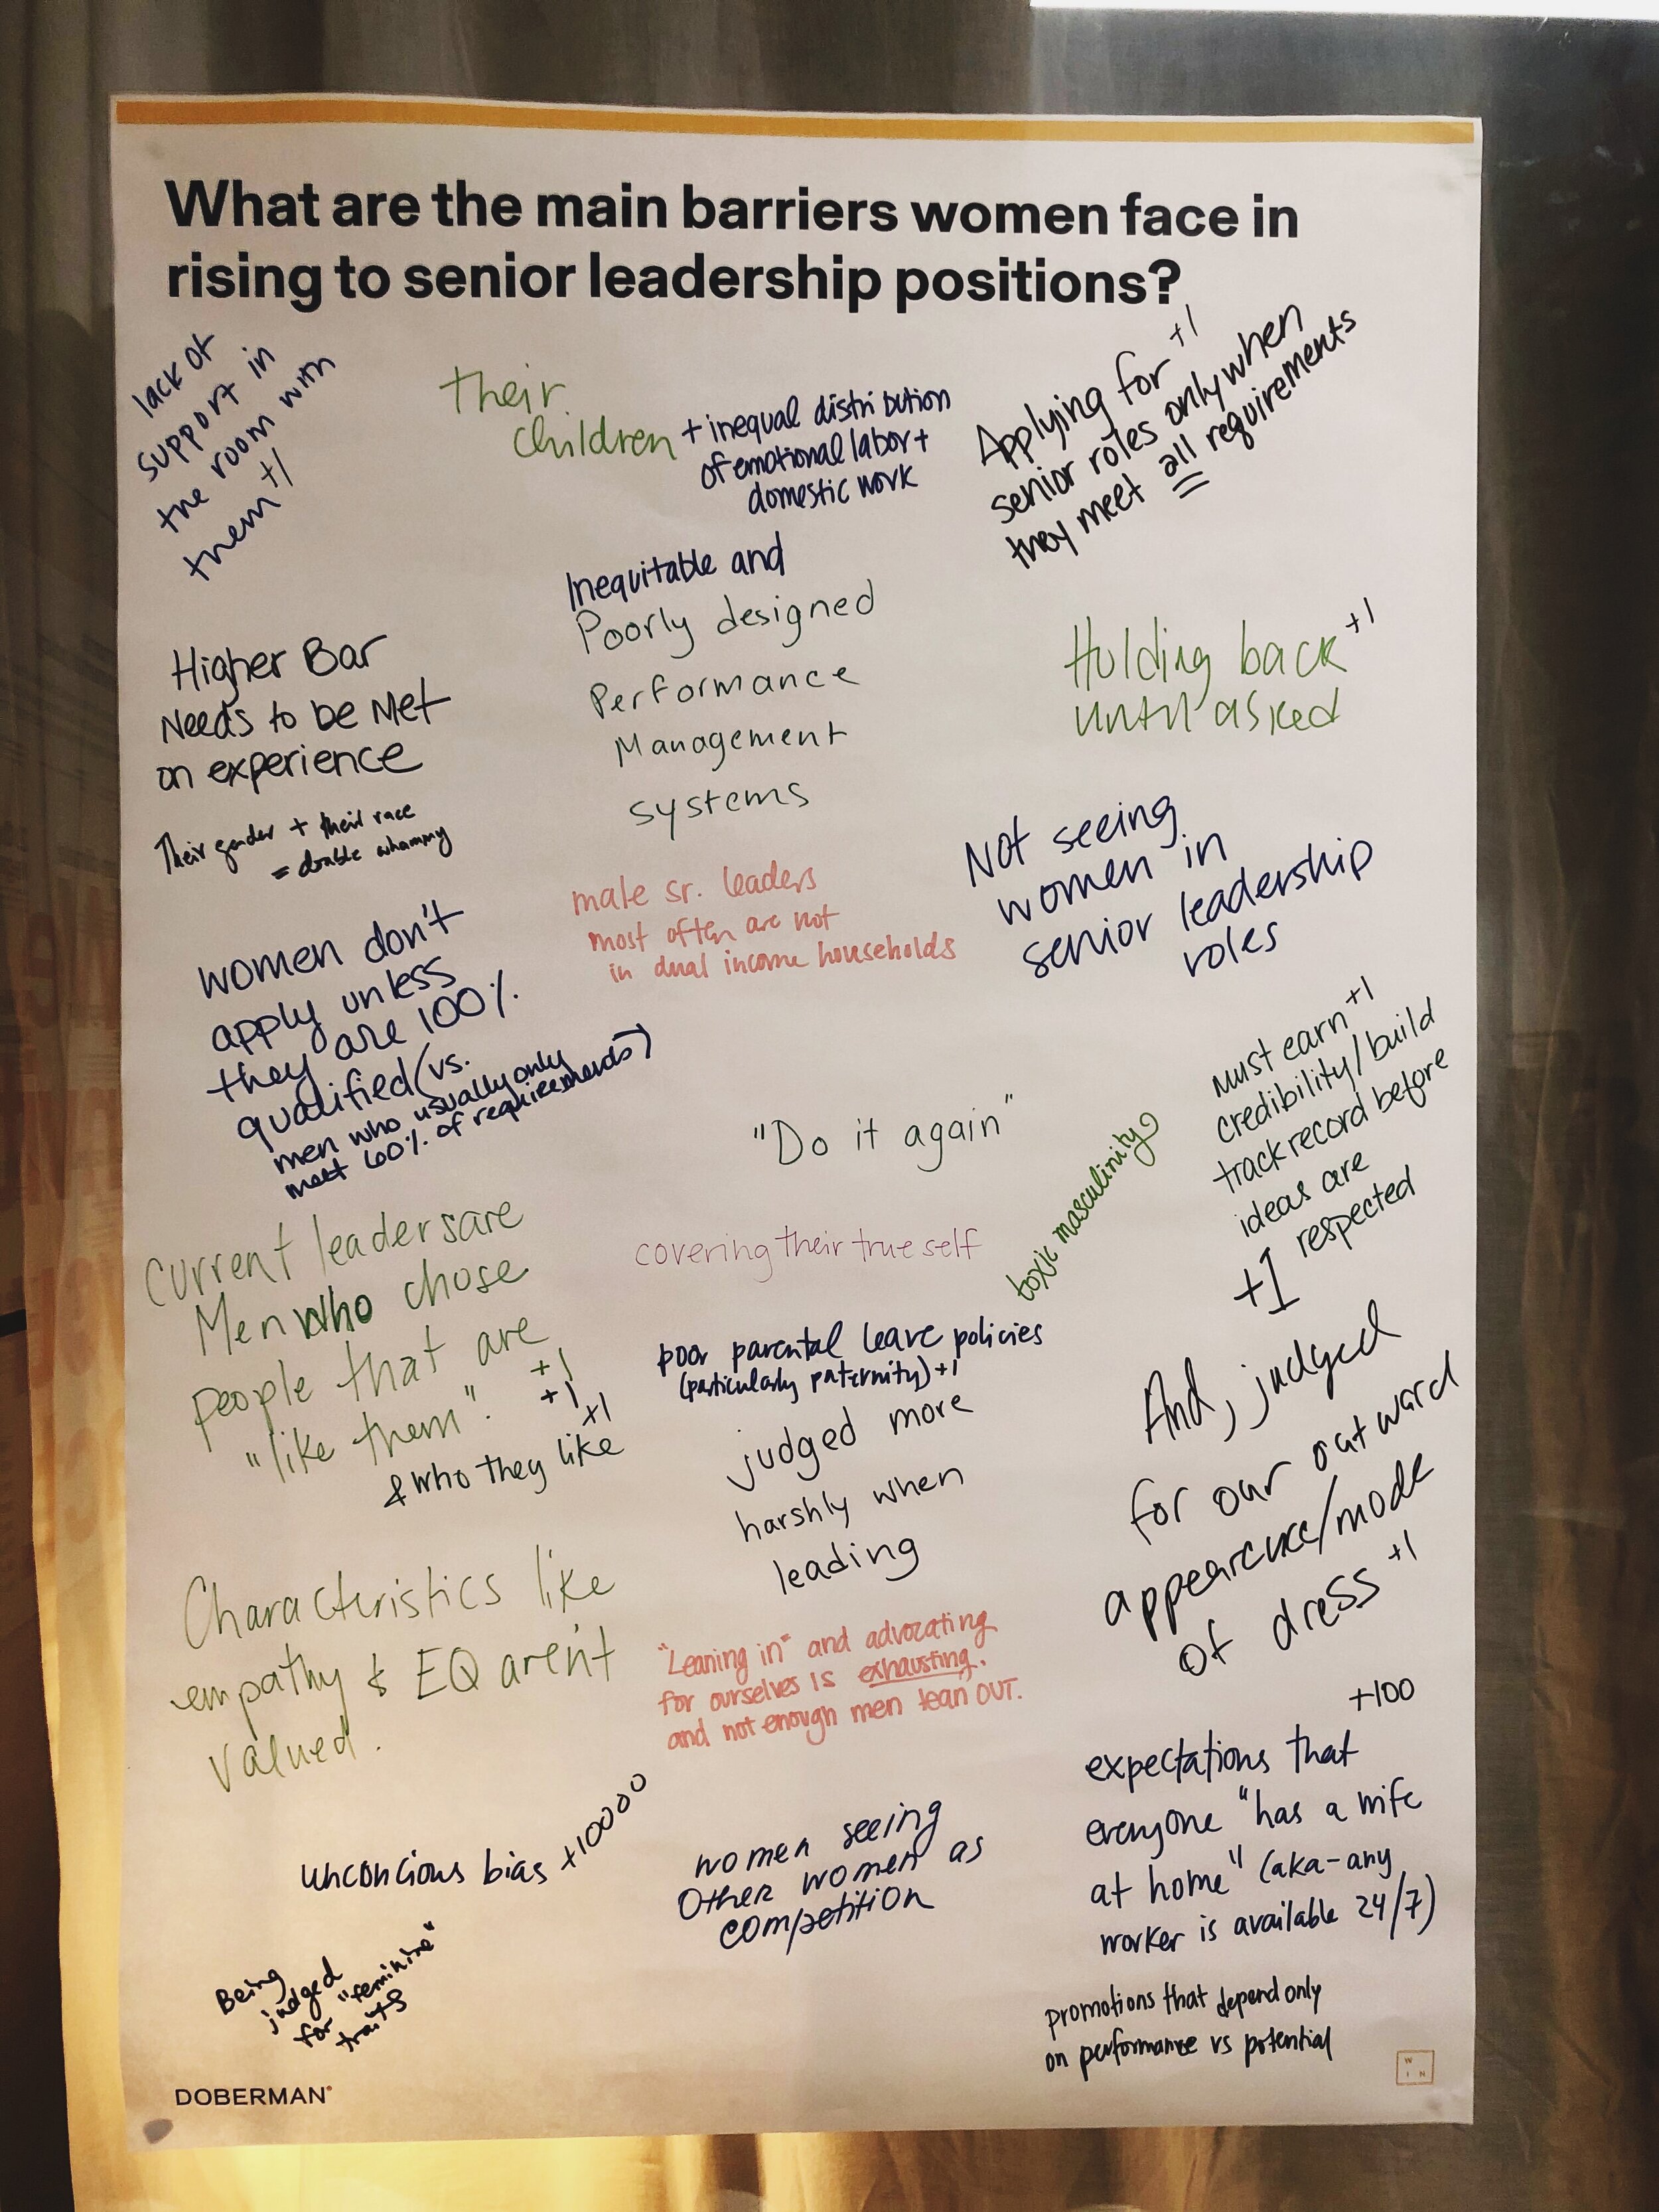 What are the main barriers women face in
rising to senior leadership positions?
lack of
support in
the room with
them +1
their
children
+ inequal distribution
of emotional labor +
domestic work
Applying for +1
senior roles only when
they meet all requirements
Inequitable and
Poorly designed
Performance
Management
systems
Holding back +1
until asked
Higher Bar
Needs to be Met
on experience
Their gender + their race
= double whammy
male sr. leaders
most often are not
in dual income households
Not seeing
women in
senior leadership
roles
women don't
apply unless
they are 100%
qualified (vs.
men who usually only
meet 60% of requirements)
"Do it again"
toxic masculinity
must earn +1
credibility/build
track record before
ideas are
respected
+1
Current leaders are
Men who chose
people that are
"like them". +1
+1
+1
& who they like
covering their true self
poor parental leave policies
(particularly paternity) +1
judged more
harshly when
leading
And, judged
for our outward
appearence/mode
of dress +1
Characteristics like
empathy & EQ aren't
valued.
"Leaning in" and advocating
for ourselves is exhausting.
and not enough men lean OUT.
+100
expectations that
everyone "has a wife
at home" (aka-any
worker is available 24/7)
unconcious bias +10000
women seeing
other women as
competition
Being
judged
for "feminine"
traits
promotions that depend only
on performance vs potential
DOBERMAN
W
IN